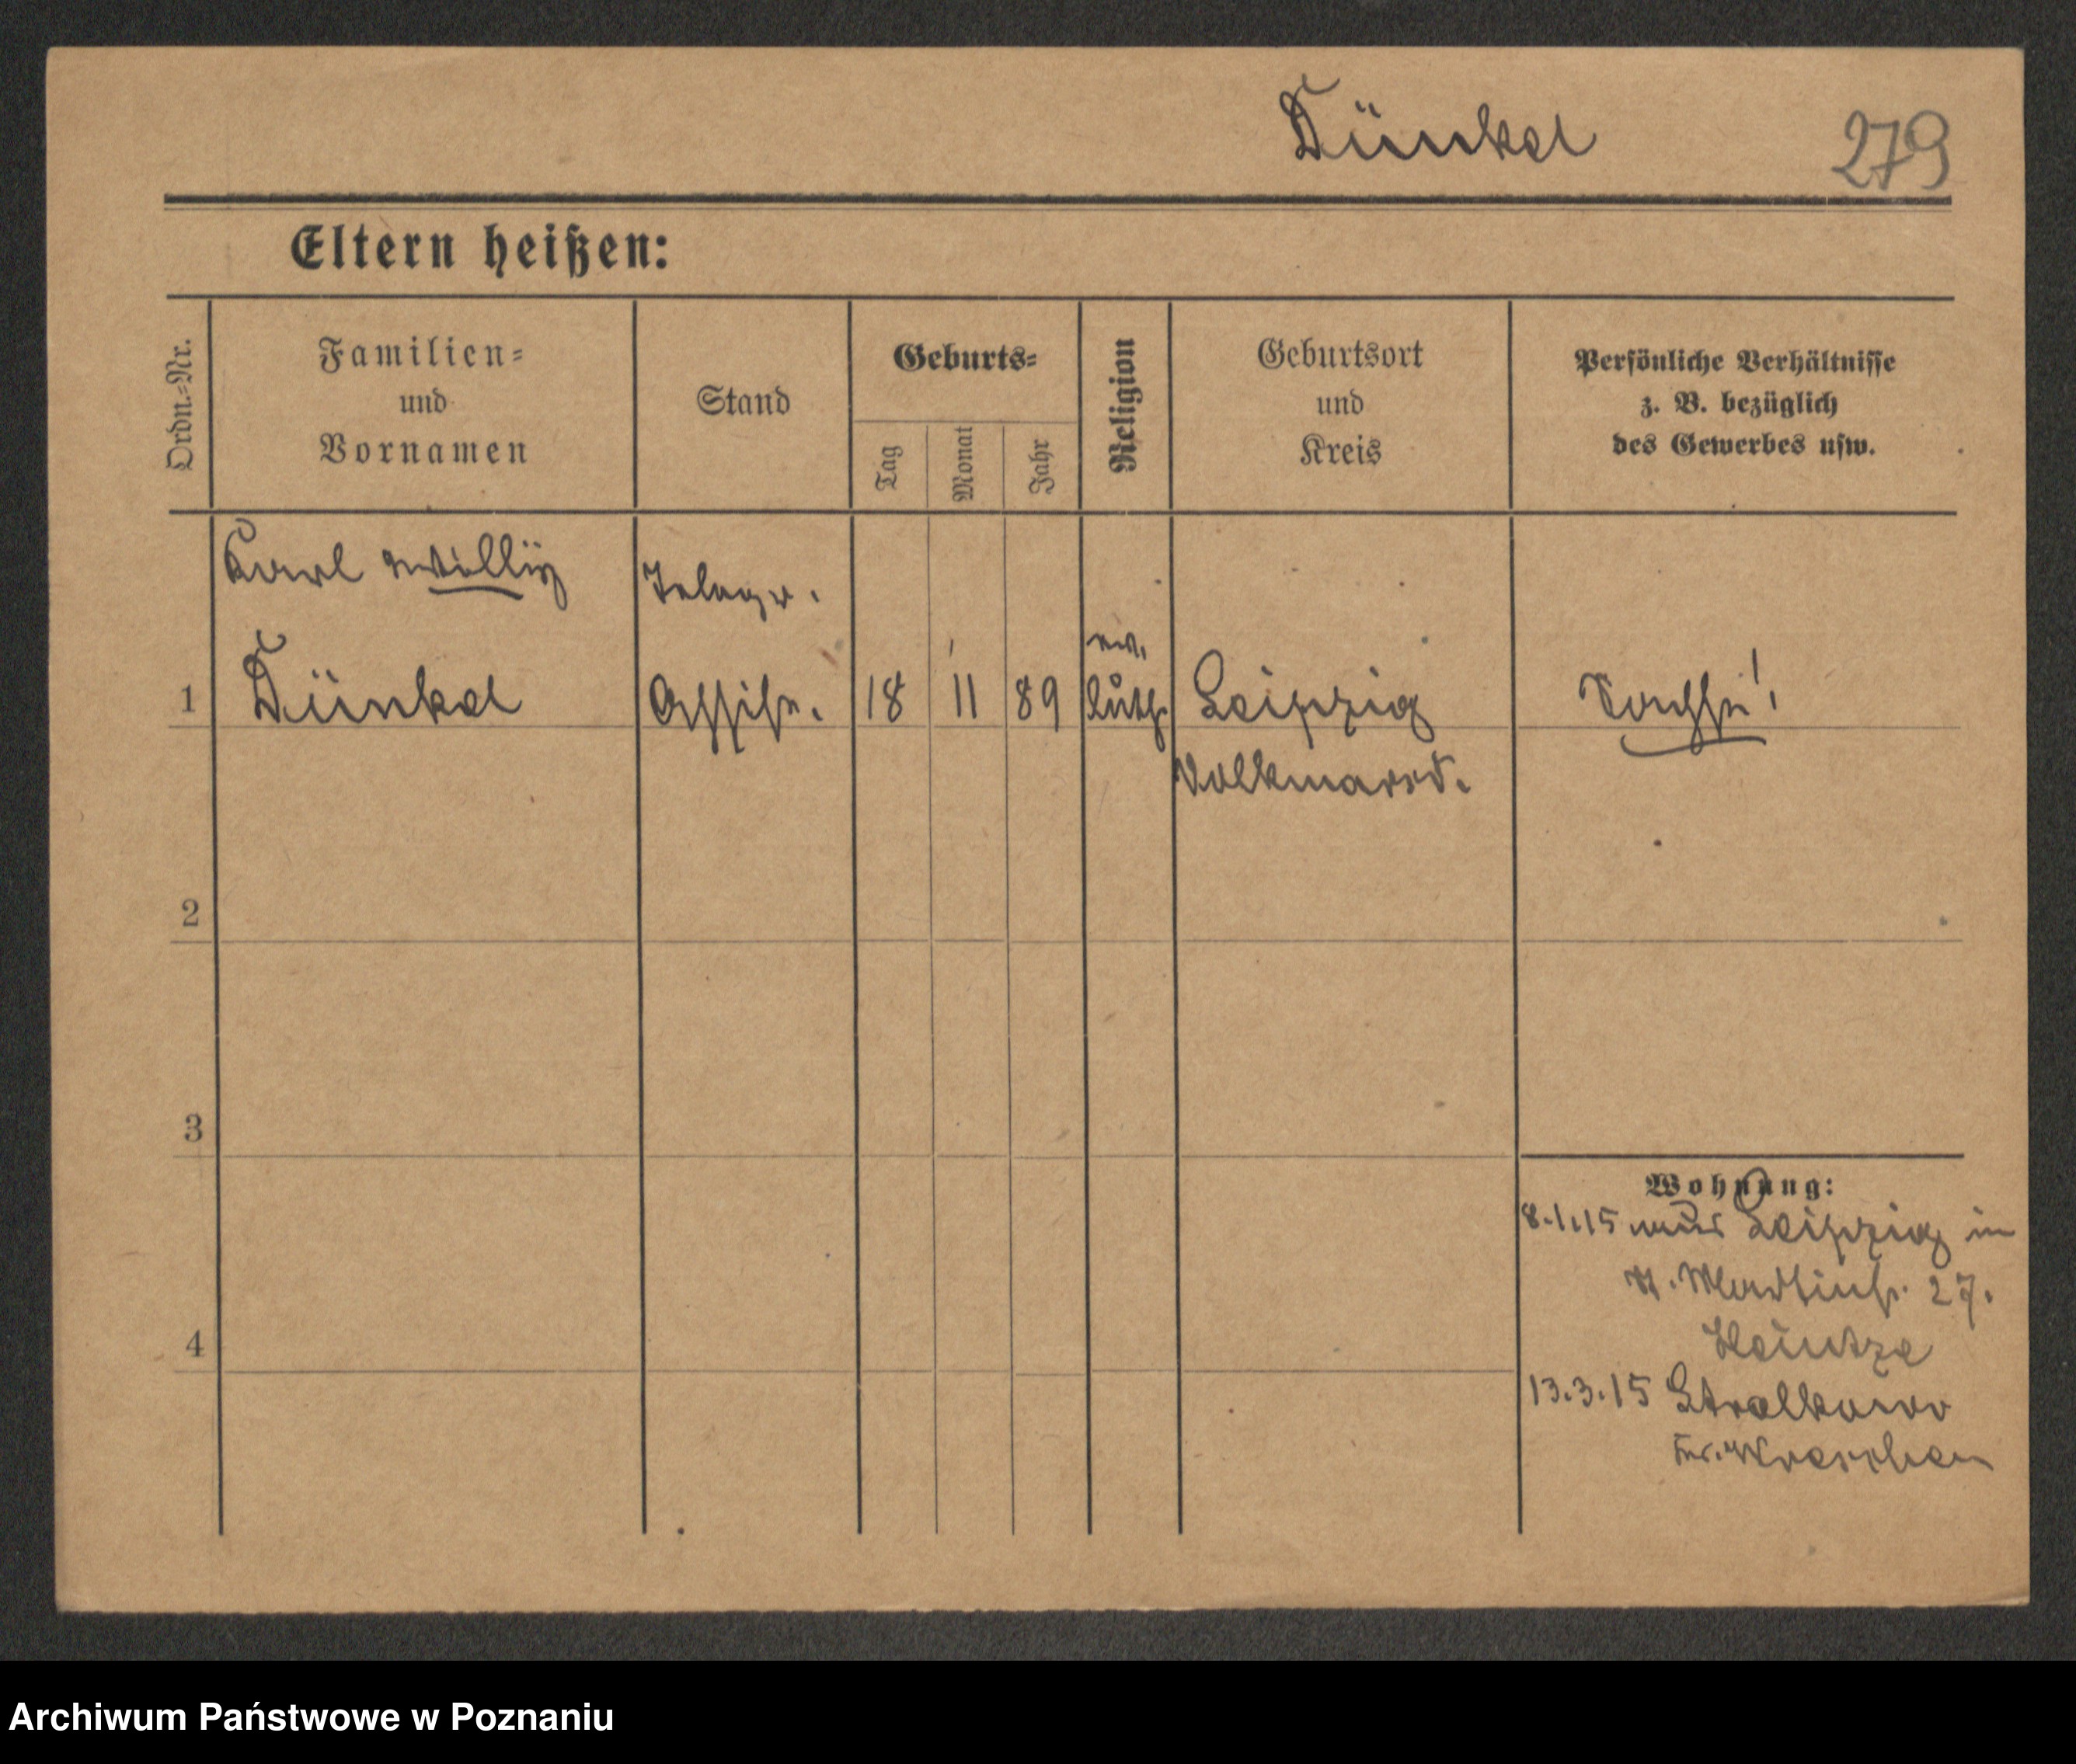 Dünkel 279
Eltern heißen:
Ordn.=Nr.
Familien=
und
Vornamen
Stand
Geburts=
Tag
Monat
Jahr
Religion
Geburtsort
und
Kreis
Persönliche Verhältnisse
z. B. bezüglich
des Gewerbes usw.
Karl Willy
Telegr.
ev.
1 Dünkel Assist. 18 11 89 luth. Leipzig Sachse!
Volkmarsd.
2
3
Wohnung:
8.1.15 aus Leipzig in
St. Martinstr. 27.
4 Heintze
13.3.15 Stralkowo
Kr. Wreschen
Archiwum Państwowe w Poznaniu